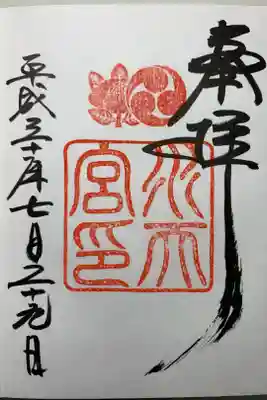 奉拝
水天
宮印
平成三十年七月二十九日